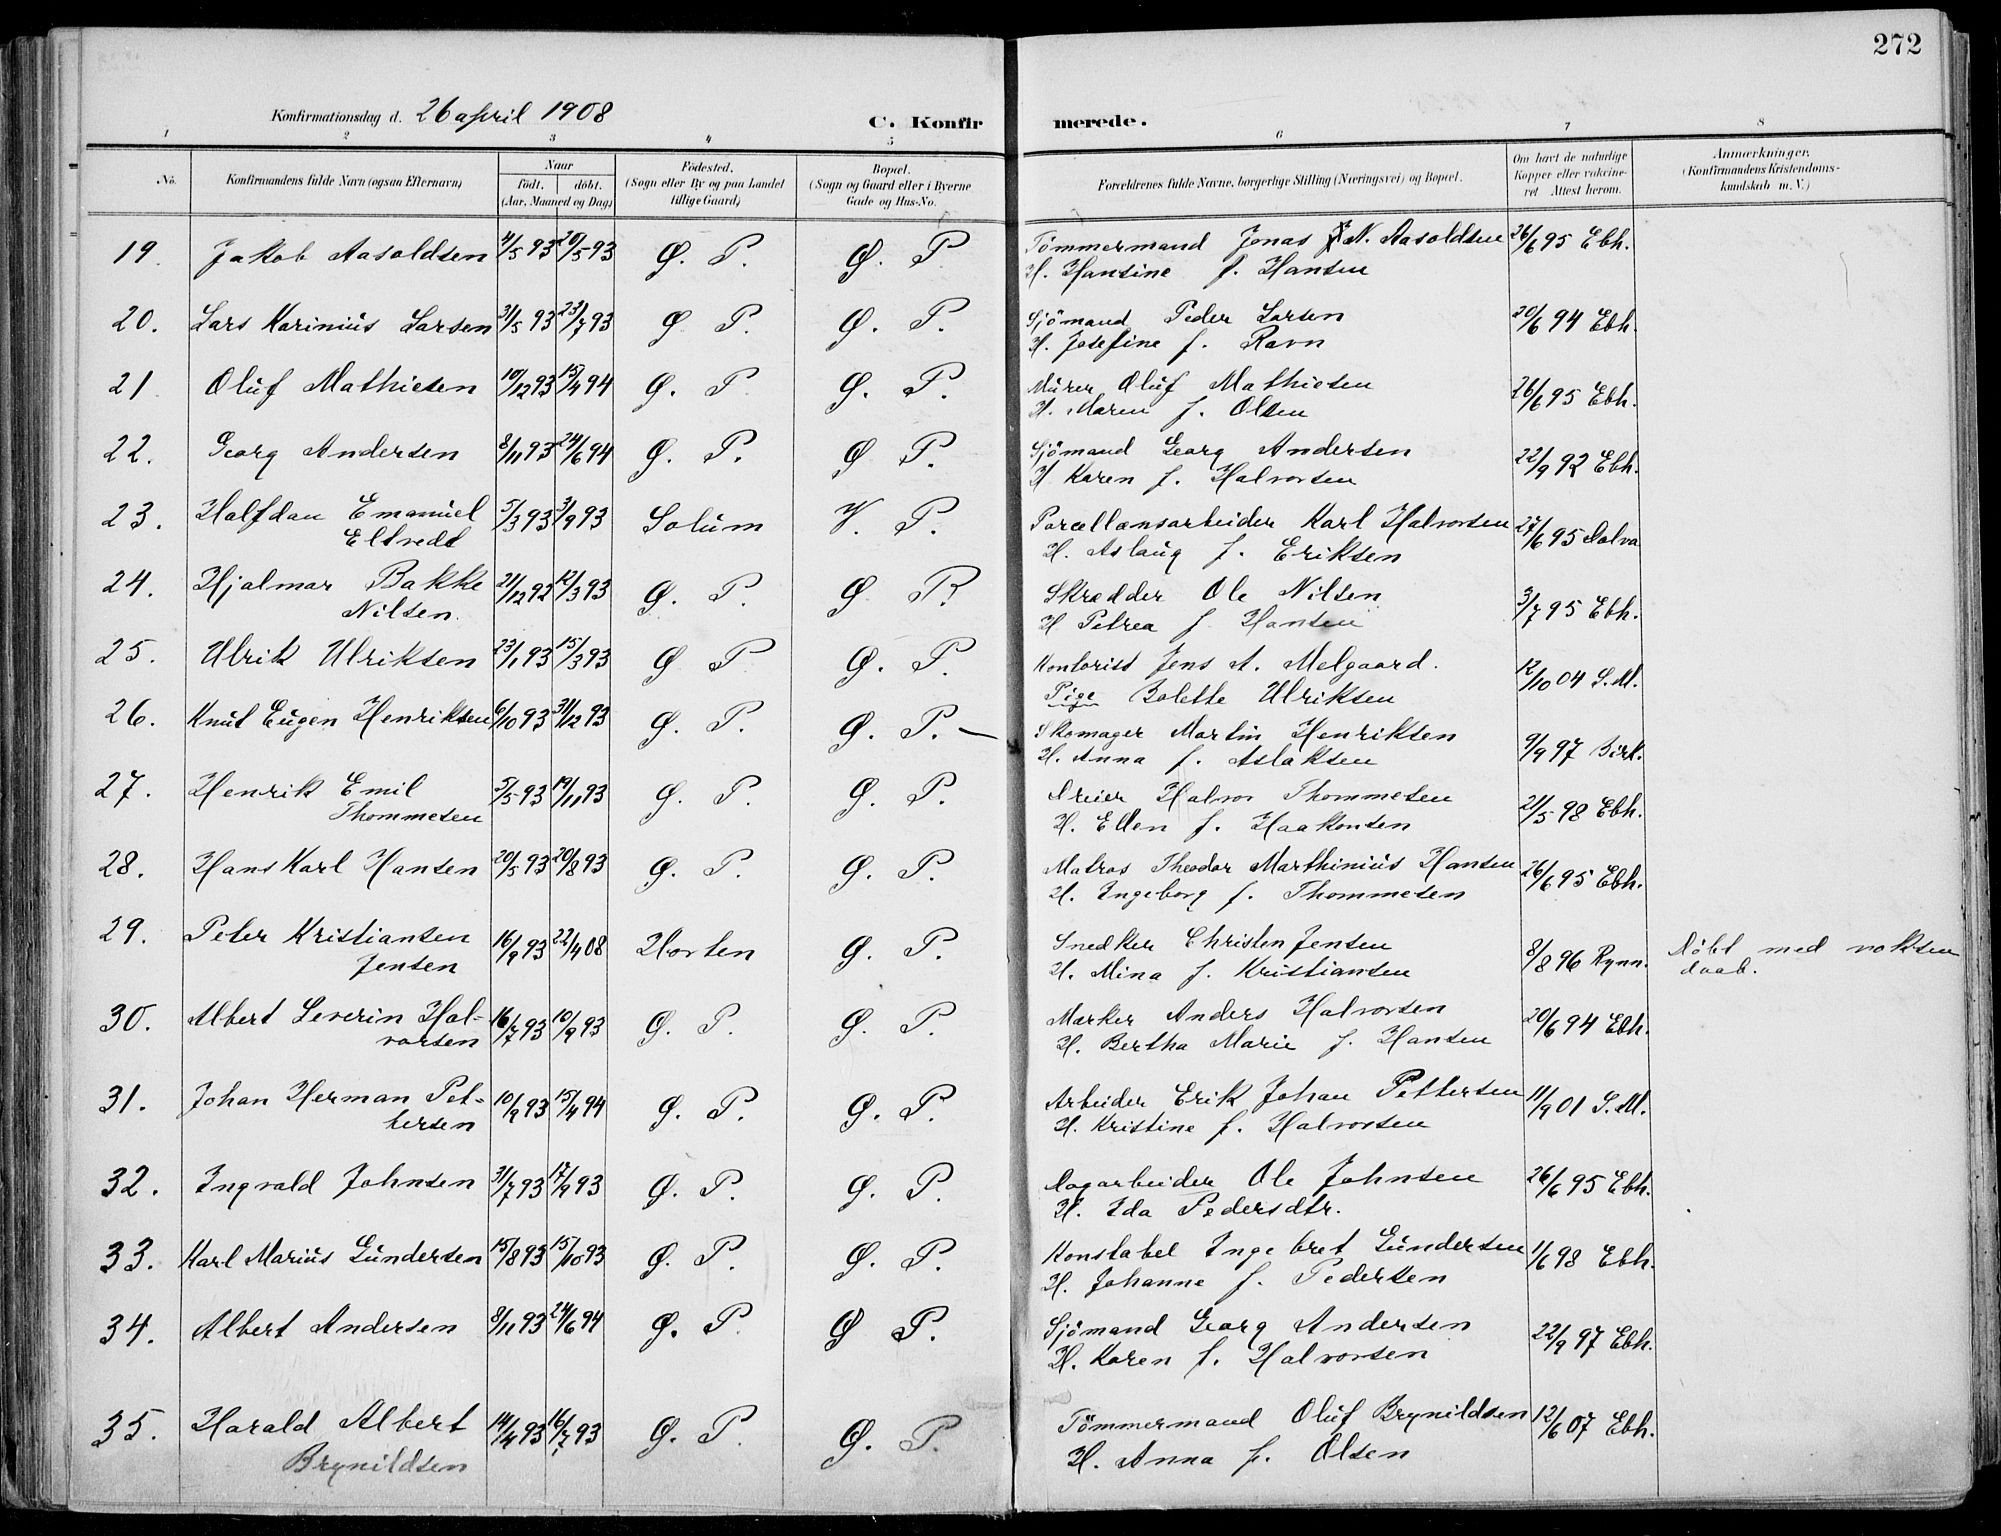 272
Konfirmationsdag d. 26 april 1908
C. Konfirmerede.
1 2 3 4 5 6 7 8
No. Konfirmandens fulde Navn (ogsaa Efternavn) Naar født. døbt. (Aar, Maaned og Dag) Fødested. (Sogn eller By og paa Landet tillige Gaard) Bopæl. (Sogn og Gaard eller i Byerne Gade og Hus-No. Forældrenes fulde Navne, borgerlige Stilling (Næringsvei) og Bopæl. Om havt de naturlige Kopper eller vakcineret Attest herom. Anmærkninger. (Konfirmandens Kristendomskundskab m. V.)
19. Jakob Aasoldsen 4/5 93 20/5 93 Ø. P. Ø. P. Tömmermand Jonas N. Aasoldsen 26/6 95 Ebh.
H. Hansine f. Hansen
20. Lars Karinius Larsen 31/5 93 23/7 93 Ø. P. Ø. P. Sjömand Peder Larsen 20/6 94 Ebh.
H. Josefine f. Ravn
21 Oluf Mathiesen 10/12 93 15/4 94 Ø. P Ø. P. Murer Oluf Mathiesen 26/6 95 Ebh.
H. Maren f. Olsen
22. Georg Andersen 8/11 93 24/6 94 Ø. P. Ø P. Sjömand Georg Andersen 22/9 92 Ebh.
H. Karen f. Halvorsen
23. Halfdan Emanuel 5/3 93 3/9 93 Solum V. P. Porcellænsarbeider Karl Halvorsen 27/6 95 Dalva
Eltvedt H. Aslaug f. Eriksen
24. Hjalmar Bakke 21/12 92 12/3 93 Ø. P. Ø P. Skrædder Ole Nilsen 3/7 95 Ebh.
Nilsen. H Petrea f. Hansen
25. Ulrik Ulriksen 23/1 93 15/3 93 Ø P Ø. P. Kontorist Jens A. Melgaard. 12/10 04 S. M.
Pige Bolette Ulriksen
26. Knut Eugen Henriksen 6/10 93 31/12 93 Ø. P. Ø. P. — Skomager Martin Henriksen 9/9 97 Birk.
H. Anna f. Aslaksen
27. Henrik Emil 5/5 93 19/11 93 Ø. P. Ø. P. Dreier Halvor Thommesen 21/5 98 Ebh.
Thommesen H. Ellen f. Haakonsen
28. Hans Karl Hansen 20/5 93 20/8 93 Ø. P. Ø. P. Matros Theodor Marthinius Hansen 26/6 95 Ebh.
H. Ingeborg f. Thommesen
29. Peter Kristiansen 16/9 93 22/4 08 Horten Ø. P. Snedker Christen Jensen 8/8 96 Rynn. Døbt med voksen
Jensen H. Mina f. Kristiansen daab.
30. Albert Severin Hal- 16/7 93 10/9 93 Ø. P. Ø. P. Mærker Anders Halvorsen 20/6 94 Ebh.
vorsen H. Bertha Marie f. Hansen
31. Johan Herman Pet- 10/9 93 15/4 94 Ø. P. Ø. P. Arbeider Erik Johan Pettersen 11/9 01 S. M.
tersen H. Kristine f. Halvorsen
32. Ingvald Johnsen 31/7 93 17/9 93 Ø. P. Ø. P. Dagarbeider Ole Johnsen 26/6 95 Ebh.
H. Ida Pedersdtr.
33. Karl Marius Gundersen 15/8 93 15/10 93 Ø. P. Ø. P. Konstabel Ingebret Gundersen 1/6 98 Ebh.
H. Johanne f. Pedersen
34. Albert Andersen 8/11 93 24/6 94 Ø. P. Ø P. Sjömand Georg Andersen 22/9 97 Ebh.
H. Karen f. Halvorsen
35. Harald Albert 14/4 93 16/7 93 Ø. P. Ø. P. Tömmermand Oluf Brynildsen 12/6 07 Ebh.
Brynildsen H. Anna f. Olsen